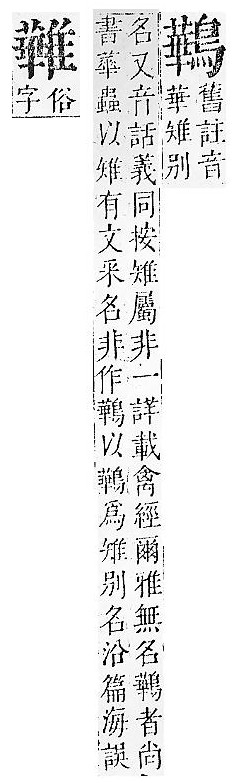 鷨
舊註音
華雉別
名又音話義同按雉屬非一詳載禽經爾雅無名鷨者尚
書華蟲以雉有文采名非作鷨以鷨爲雉別名沿篇海誤
䧹
俗
字